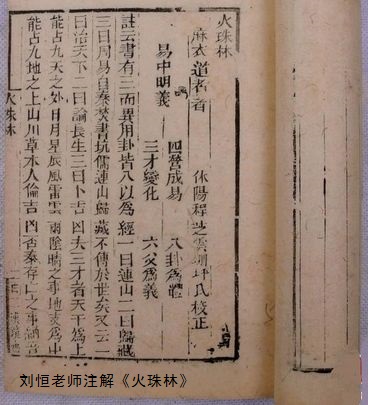 火珠林
麻衣道者著 休陽程芝雲 坪氏校正
四營成易 八卦為體
易中明義
三才變化 六爻為義
註云書有三而異用卦皆八以為經一曰連山二曰歸藏
三曰周易自秦焚書坑儒連山歸藏不傳於世矣又云一
曰治天下二曰論長生三曰卜吉凶夫三才者天干為上
能占九天之外日月星辰風雷雲雨陰晴之事地支為中
能占九地之上山川草木人倫吉凶否泰存亡之事納音
火珠林
刘恒老师注解《火珠林》